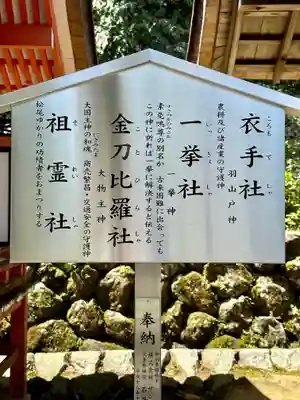 ころもでしゃ
衣手社
羽山戸神
農耕及び諸産業の守護神
いっきょしゃ
一挙社
一挙神
すさのおのみこと
素戔嗚尊の別名か 古来困難に出会っても
この神に祈れば一挙に解決すると伝る
ことひらしゃ
金刀比羅社
大物主神
にぎみたま
大国主神の和魂 商売繁昌・交通安全の守護神
それいしゃ
祖霊社
松尾ゆかりの功績者をおまつりする
奉納